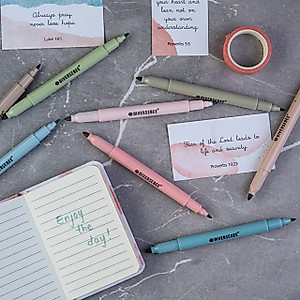 Always pray
never lose hope.
Luke 18:1
your heart and
lean not on
your own
understanding.
Proverbs 3:5
DIVERSEBEE
DIVERSEBEE
DIVERSEBEE
DIVERSEBEE
Fear of the Lord leads to
life and security.
Proverbs 19:23
Enjoy
the day!
DIVERSEBEE